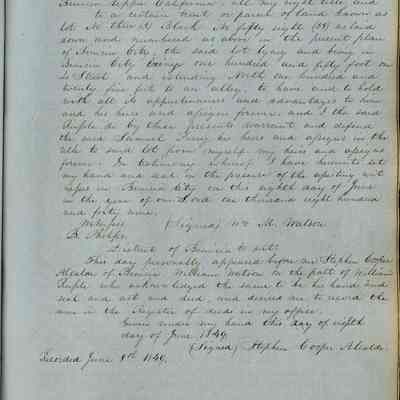 Benicia Upper California. all my right title and
to a certain tract or parcel of land known as
lot No three (3) Block No fifty eight (58) as laid
down and numbered as above in the present plan
of Benicia City, the said lot lying and being in
Benicia City being one hundred and fifty foot on
Street and extending North one hundred and
twenty five feet to an alley. to have and to hold
with all its appurtenances and advantages to him
and his heirs and assigns forever. and I the said
do by these presents warrant and defend
the said Samuel his heirs and assigns in the
title to said lot from myself my heirs and assigns
forever. In testimony whereof I have hereunto set
my hand and seal in the presence of the
in Benicia City on this eighth day of June
in the year of our Lord one thousand eight hundred
and forty nine.
Witness (Signed) Wm M. Watson
B. Phelps
District of Benicia to wit:
This day personally appeared before me Stephen Cooper
Alcalde of Benicia William Watson on the part of William
who acknowledged the same to be his hand and
seal and act and deed, and desired me to record the
same in the Register of deeds in my office.
Given under my hand this day of eighth
day of June 1849.
(Signed) Stephen Cooper Alcalde.
Recorded June 8th 1849.